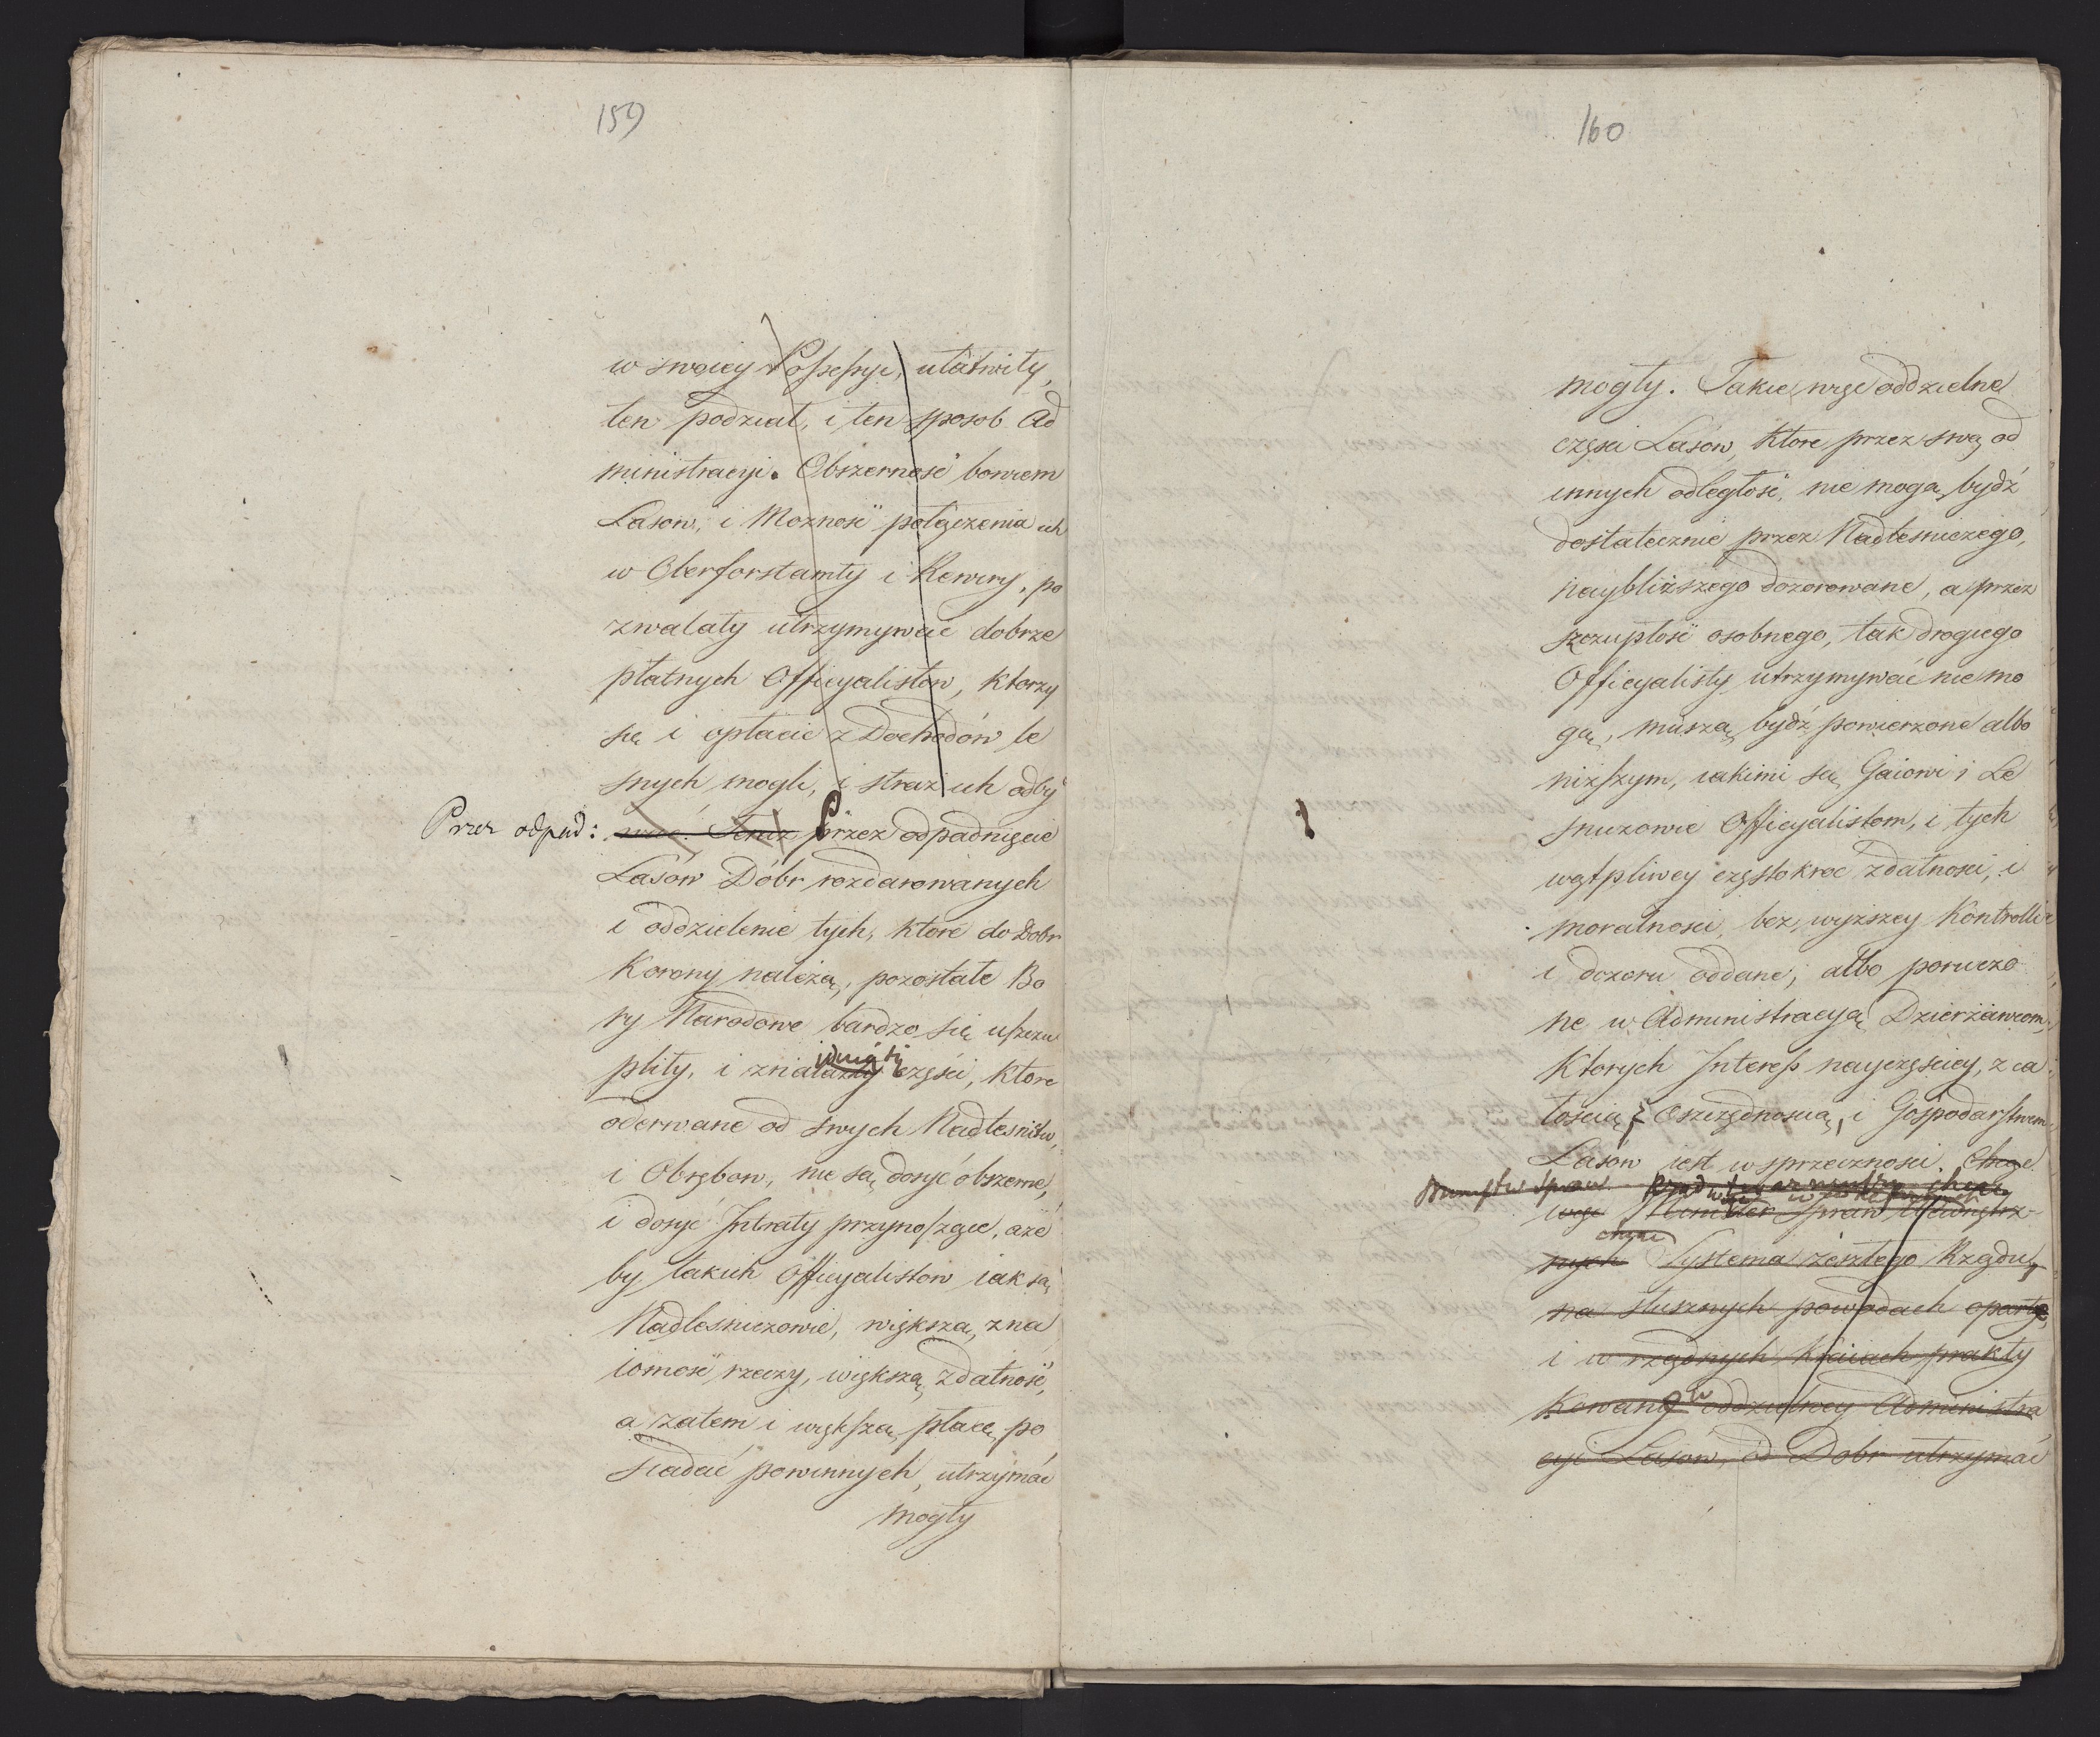 159
w swoiey Possessyi, ułatwiły,
ten podział, i ten sposob Ad
ministracyi. Obszerność bowiem
Lasow, i Możność połączenia ich
w Oberforstamty i Rewiry, po
zwalały utrzymywać dobrze
płatnych Officyalistow, ktorzy
się i opłacić z Dochodów le
snych mogli, i straż ich odby
Przez odpad: wać. Teraz Przez odpadnięcie
Lasów Dóbr rozdarowanych
i oddzielenie tych, ktore do Dobr
Korony należą, pozostałe Bo
ry Narodowe bardzo się uszczu
pliły, i znalazły części, ktore
oderwane od swych Nadlesnitw,
i Obrębow, nie są dosyć obszerne,
i dosyć Intraty przynoszące, aże
by takich Officyalistow iak są
Nadlesniczowie, większą zna
iomość rzeczy, większą zdatność,
a zatem i większą płacę po
siadać powinnych, utrzymać
mogły
160
mogły. Takie więc oddzielne
części Lasów, ktore przez swą od
innych odległość, nie mogą bydź
dostatecznie przez Nadlesniczego,
naybliższego dozorowane, a przez
szczupłość osobnego, tak drogiego
Officyalisty utrzymywać nie mo
gą, muszą bydź powierzone albo
niższym, iakimi są Gaiowi i Le
sniczowie Officyalistom, i tych
wątpliwey częstokroć zdatności, i
moralności, bez wyższey Kontrolli
i dozoru oddane, albo poruczo
ne w Administracyą Dzierżawcom,
Ktorych Interess nayczęściey, z ca
łością, Oszczędnością, i Gospodarstwem
Lasów iest w sprzeczności. Chcąc
więc Minister Spraw Wewnętrz-
chcąc
nych Systema zeszłego Rządu,
na słusznych powodach oparte,
i w rządnych Kraiach prakty
kowane oddzielney Administra
cyi Lasów, od Dobr utrzymać